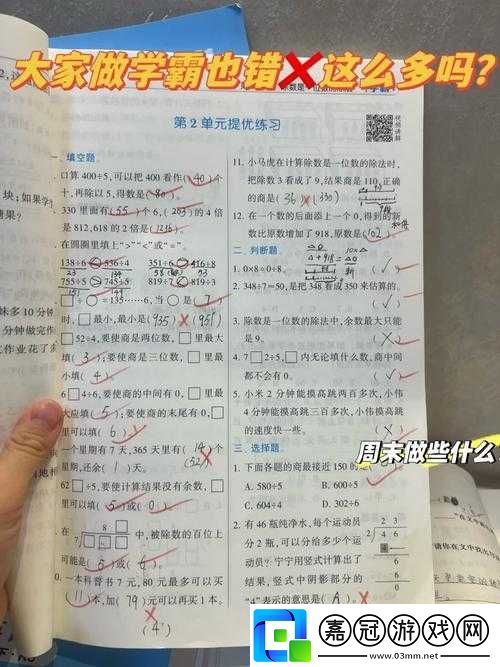 大家做学霸也错❌这么多吗?
第2单元提优练习
一、填空题。
口算400÷5,可以把400看作(40)个
十,再除以5,得数是(80)。
330里面有(55)个6,(203)的4倍
是812,618的2倍是(1236)。
在圆圈里填上“>”“<”或“=”。
138÷6 536÷4 351÷6 416÷8
755÷5 745÷5 819÷7 819÷3
□÷○=135……6,当○是(7)
时,□最小,最小是(935)✗(951)
□52÷4,要使商是两位数,□里最大
填(3);要使商是三位数,□里最
小填(4)。
6□4÷6,要使商的中间有0,□里最
大应填(5);要使商的末尾有0,□
里可以填(6)
一个星期有7天,365天里有(14)个
(52)
星期,还余(1)天。
62□÷5,要使计算结果没有余数,□
里可以填(5)或(0)。
在 中,被除数的百位上
可能是(5)或(6)。
0.一本科普书7元,80元最多可以买
(11)本,加(79)元可以再买1本。
(4)
11.小马虎在计算除数是一位数的除法时,
把除数3看成了9,结果商是110,正确
的商是(36)✗(330)
12.在一个数的后面添上一个0,得到的新
数比原数增加了918,原数是(102)
二、判断题。
1. 0×8=0÷8.
2. 348÷7≈50,是把348看成350来估算的。
(✓)
3. 除数是一位数的除法中,余数最大只能
是9。 (✗)
4. 7□2÷5,□内无论填什么数,商中间
都不会有0。 (✓)
5. 小米2分钟能摸高跳两百多次,小伟
4分钟能摸高跳三百多次,小伟摸高跳
的速度快一些。 (✗)
三、选择题。
周末做些什么
1. 下面各题的商最接近150的
A. 580÷5 B. 600÷5
C. 604÷4 D. 302÷6
2. 有46瓶纯净水,每个运动员
分2瓶,可以分给多少个运
动员? 宁宁用竖式计算出了
结果,竖式中阴影部分的
“4”表示的意思是(A)。
2 3
2 4 6
4
6
6
0
嘉冠游戏网
www.03mm.net